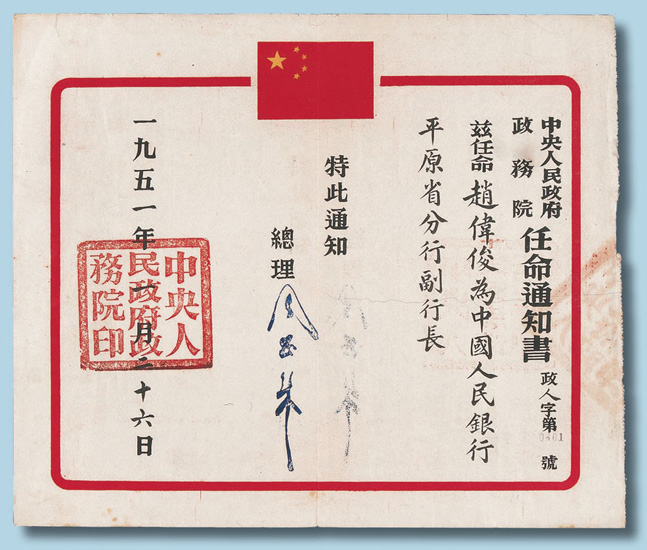 中央人民政府
政務院
任命通知書
政人字第 號
茲任命趙偉俊為中國人民銀行
平原省分行副行長
特此通知
總理 周恩來
一九五一年一月二十六日
中央人
民政府政
務院印